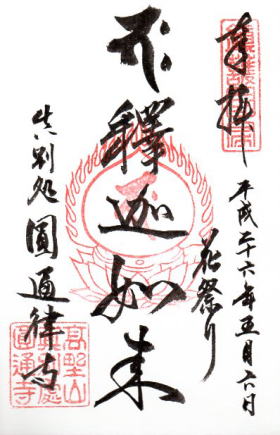 奉拝
平成二十六年五月六日
花祭り
釋迦如来
真別処圓通律寺
高野山
真別處
圓通寺